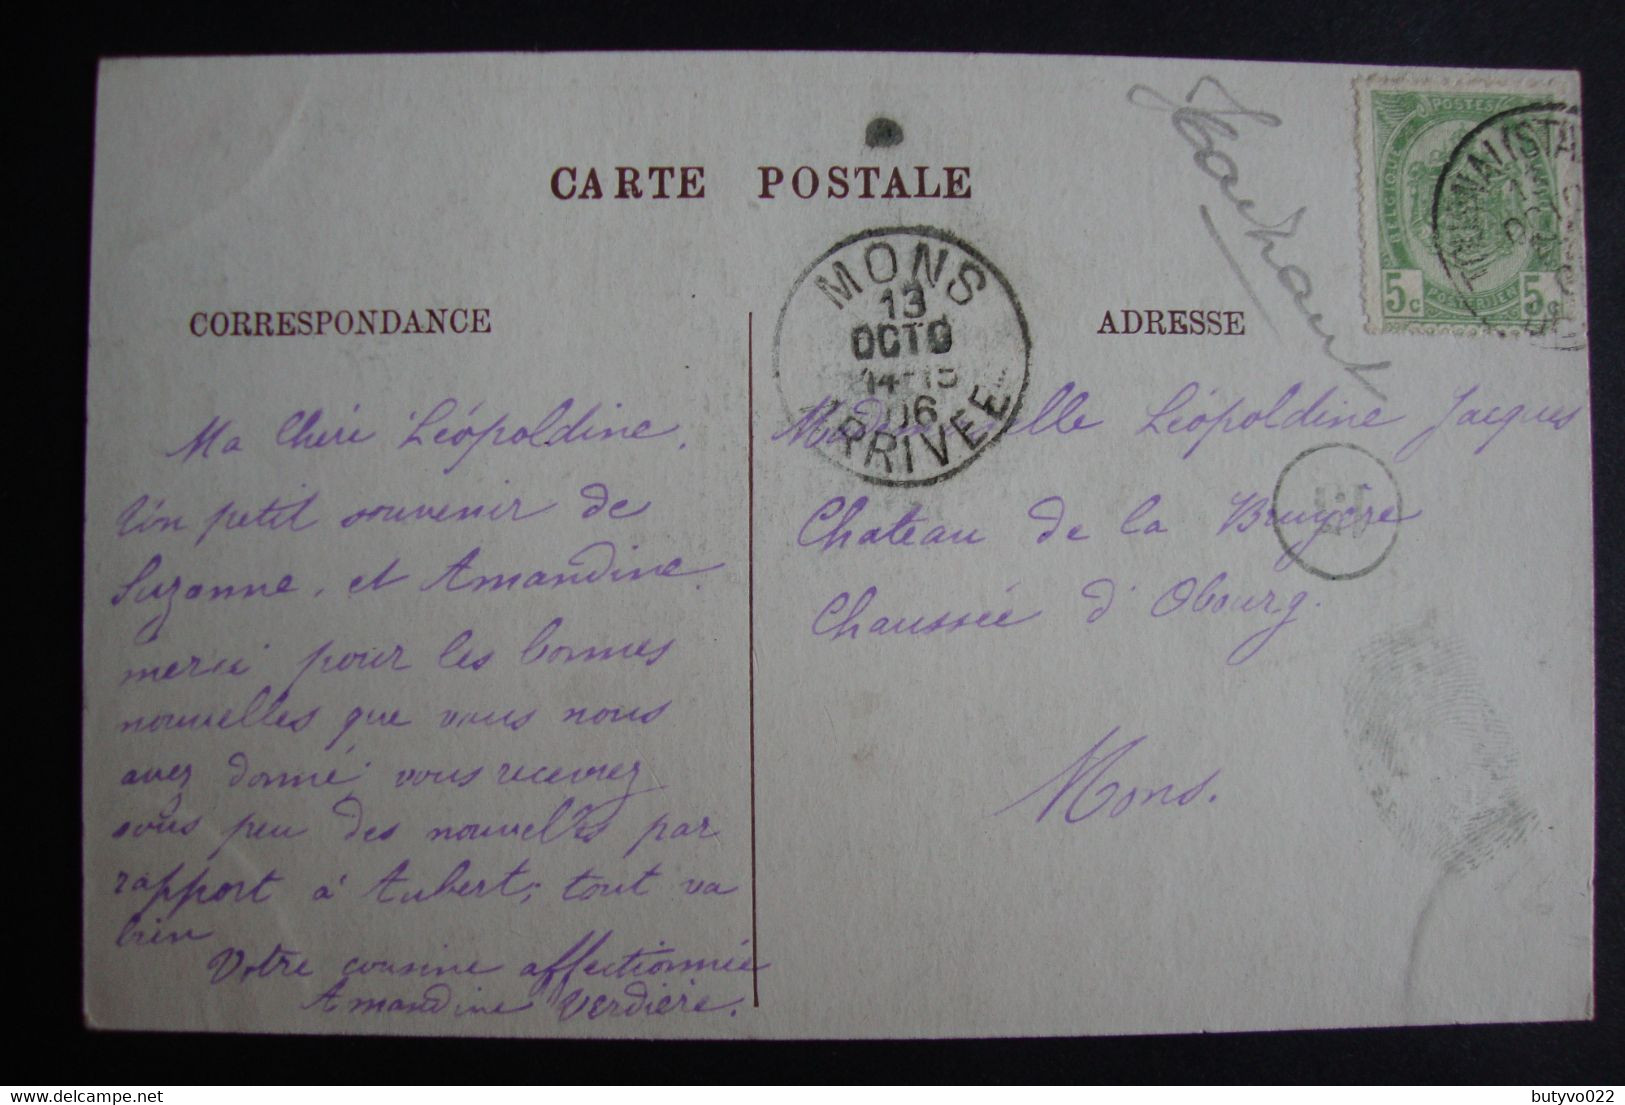 CARTE POSTALE
CORRESPONDANCE
Ma Chère Léopoldine.
Un petit souvenir de
Suzanne, et Amandine.
merci pour les bonnes
nouvelles que vous nous
avez donné; vous recevrez
sous peu des nouvelles par
rapport à Aubert; tout va
bien
Votre cousine affectionnée
Amandine Verdière.
MONS
13
OCTO
14-15
06
ARRIVEE
ADRESSE
Mademoiselle Léopoldine Jacques
Chateau de la Bruyère
Chaussée d'Obourg.
Mons.
POSTES
BELGIQUE
POSTERIJEN
5c 5c
TOURNAI (STA
butyvo022
delcampe.net